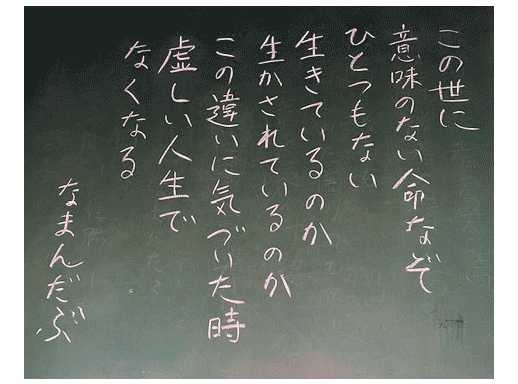 この世に
意味のない命なぞ
ひとつもない
生きているのか
生かされているのか
この違いに気づいた時
虚しい人生で
なくなる
なまんだぶ